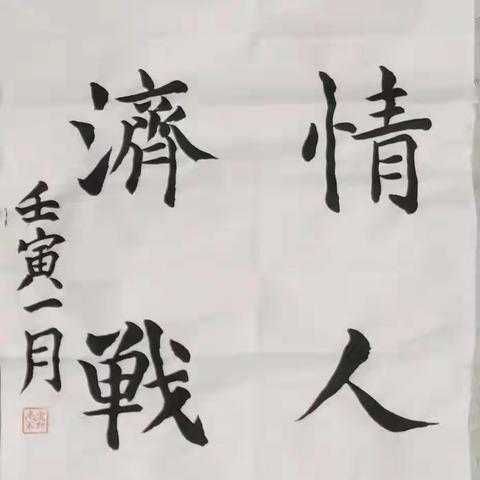 情人
濟戦
壬寅一月